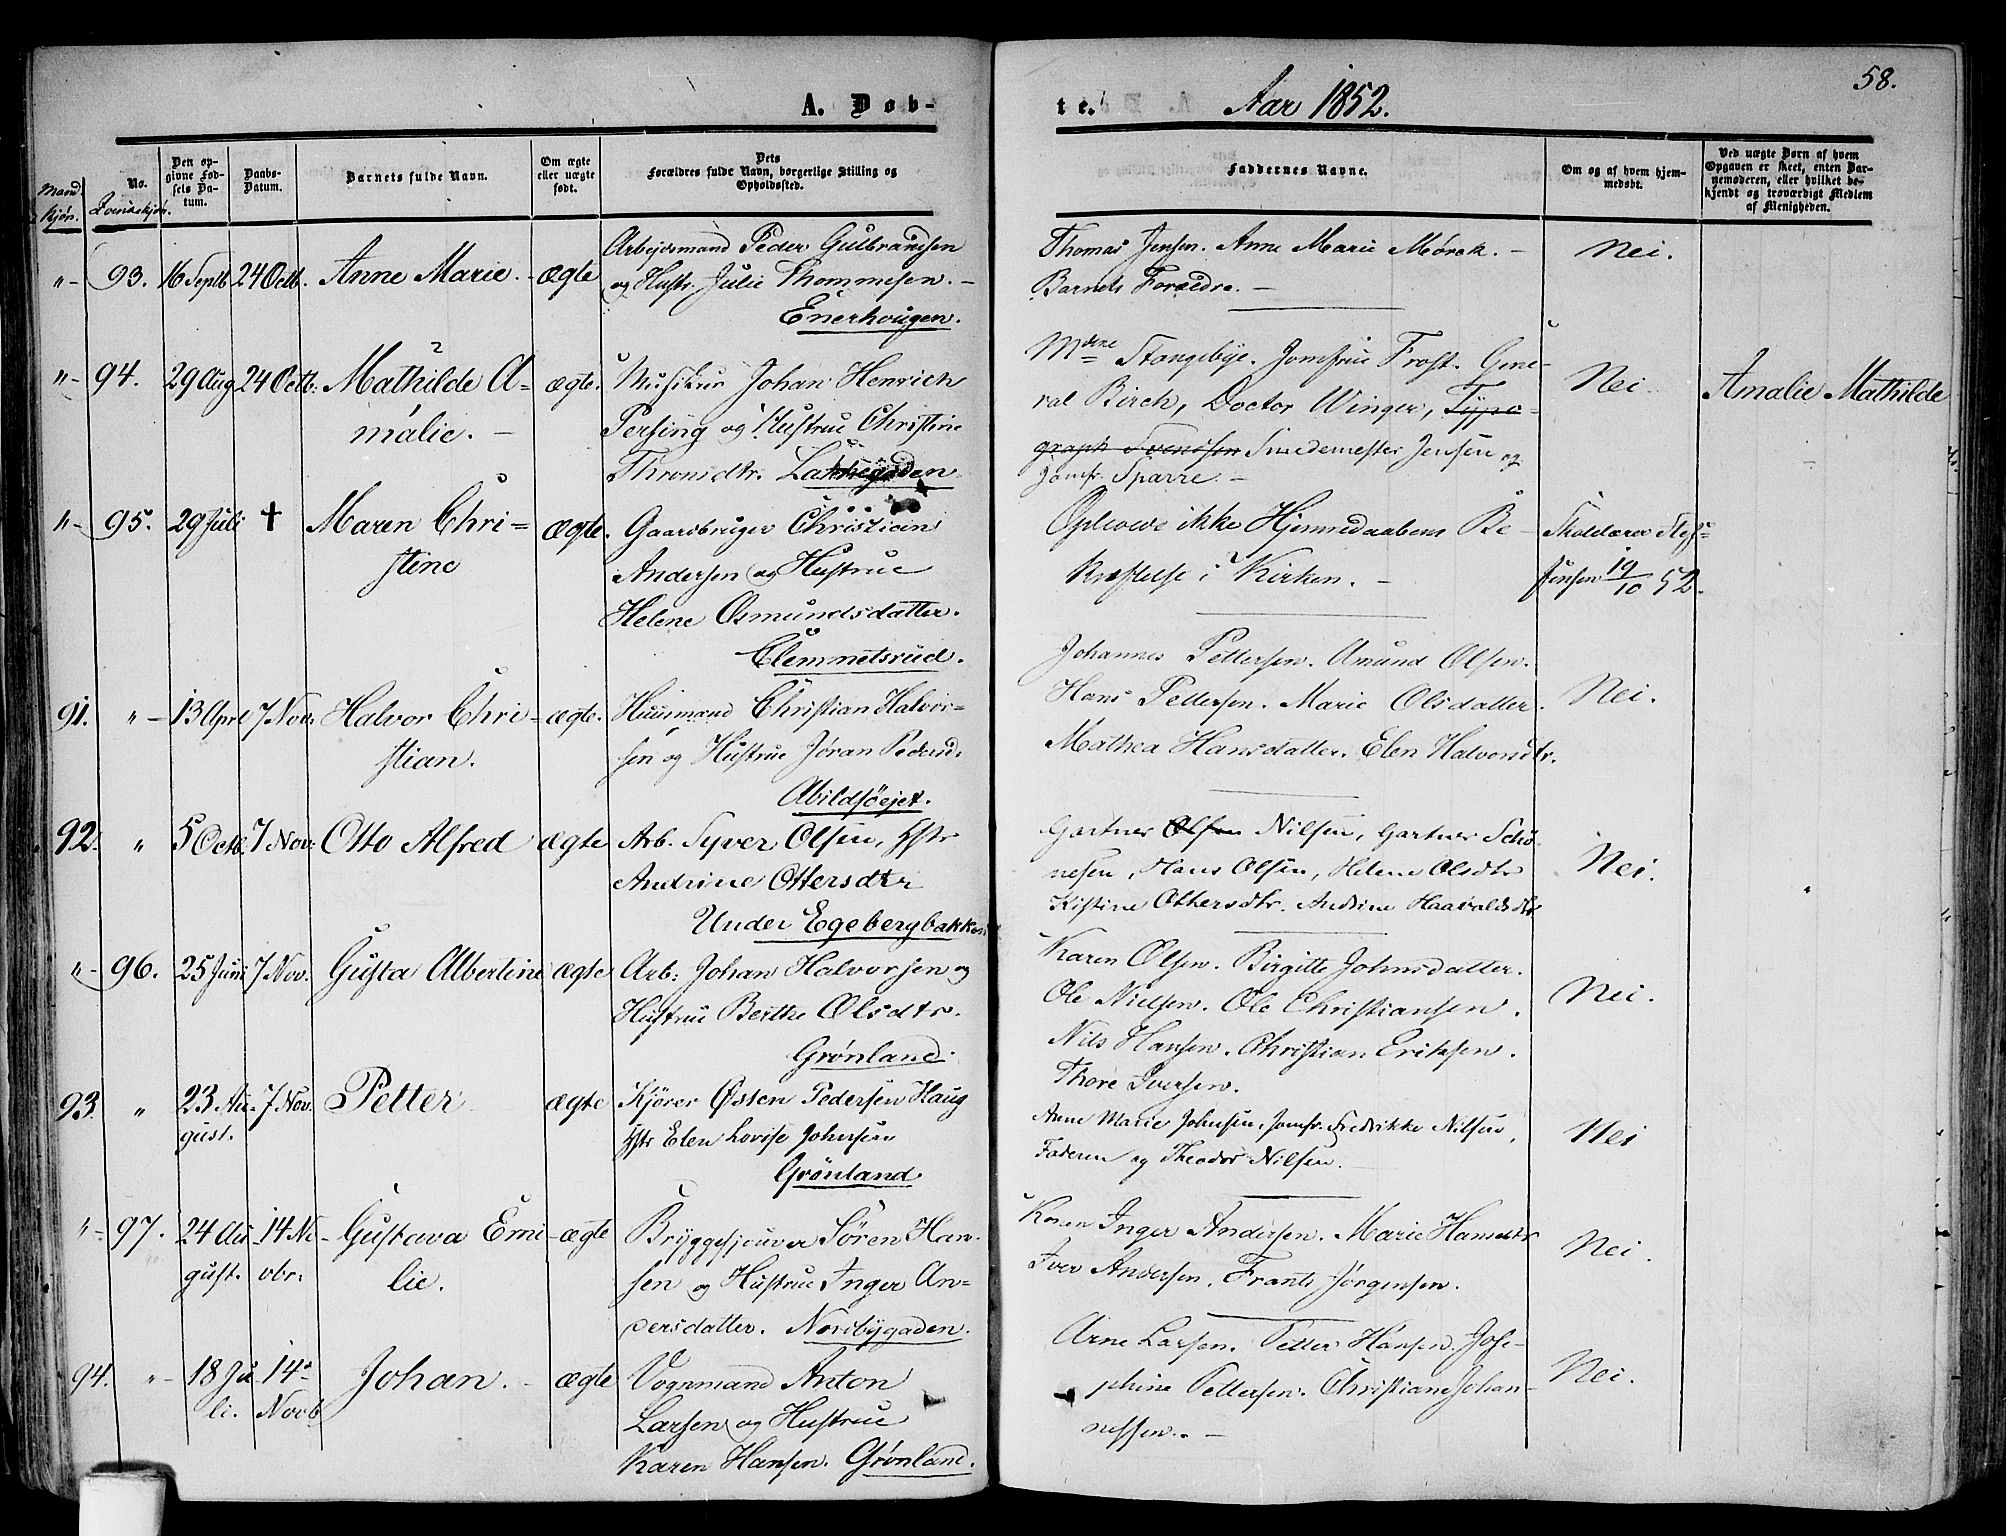 58.
A. Døb-
te. Aar 1852.
Mand
kjøn.
No.
Qvindekjøn.
Den op-
givne Fød-
sels Da-
tum.
Daabs-
Datum.
Barnets fulde Navn.
Om ægte
eller uægte
født.
Dets
Forældres fulde Navn, borgerlige Stilling og
Opholdssted.
Faddernes Navne.
Om og af hvem hjem-
medøbt.
Ved uægte Børn af hvem
Opgaven er skeet, enten Bar-
nemoderen, eller hvilket be-
kjendt og troværdigt Medlem
af Menigheden.
"- 93. 16 Septb 24 Octb. Anne Marie. - ægte
Arbeidsmand Peder Gulbrandsen
og Hustr. Julie Thommesen. -
Enerhougen.
Thomas Jensen. Anne Marie Mørck. -
Barnets Forældre. -
Nei.
"- 94. 29 Aug 24 Octb. Mathilde A-
malie. -
ægte.
Musikus Johan Henrich
Persing og Hustrue Christine
Thronsdtr. Lakkegaden
Mdme Stangebye. Jomfrue Frost. Gene-
ral Birch, Doctor Winger, Typo-
graph Svendsen Smedemester Jensen og
Jomfr. Sparre. -
Nei.
Amalie Mathilde
"- 95. 29 Juli † Maren Chri-
stine
ægte.
Gaardbruger Christian
Andersen og Hustrue
Helene Osmundsdatter.
Clemmetsrud.
Oplevede ikke Hjemmedaabens Be-
kræftelse i Kirken. -
Skolelærer
Jensen 19/10 52.
91. "- 13 Apr 7 Nov. Halvor Chri-
stian.
ægte.
Huusmand Christian Halvor-
sen og Hustrue Jøran Pedersd.
Abildsøejet.
Johannes Pettersen. Amund Olsen.
Hans Pettersen. Marie Olsdatter.
Mathea Hansdatter. Elen Halvorsdtr.
Nei.
92. " 5 Octb. 7 Nov. Otto Alfred ægte
Arb. Syver Olsen, Hstr
Andrine Ottersdtr
Under Egebergbakken
Gartner Olsen Nilsen, Gartner Schø-
nesen, Hans Olsen, Helene Olsdtr
Kistine Ottersdtr. Andrine Haavaldsdtr
Nei.
"- 96. 25 Juni 7 Nov. Gusta Albertine ægte
Arb: Johan Halvorsen og
Hustrue Berthe Olsdtr.
Grønland.
Karen Olsen. Birgitte Johnsdatter.
Ole Nielsen. Ole Christiansen.
Nils Hansen. Christian Eriksen.
Thore Iversen.
Nei.
93. " 23 Au-
gust.
7 Nov. Petter ægte
Kjører Østen Pedersen Haug
Hstr Elen Lovise Johnsen
Grønland
Anne Marie Johnsen, Jomfr. Fredrikke Nilsen,
Faderen og Theodor Nilsen.
Nei
"- 97. 24 Au-
gust.
14 No-
vbr.
Gustava Emi-
lie.
ægte
Bryggesjouver Søren Han-
sen og Hustrue Inger An-
dersdatter. Nordbygaden.
Karen Inger Andersen. Marie Hansdtr
Iver Andersen. Frants Jørgensen.
Nei.
94. "- 18 Ju-
li.
14de
Novb
Johan. - ægte
Vognmand Anton
Larsen og Hustrue
Karen Hansen. Grønland.
Arne Larsen. Petter Hansen. Jose-
phine Pettersen. Christiane Johan-
nessen. -
Nei.